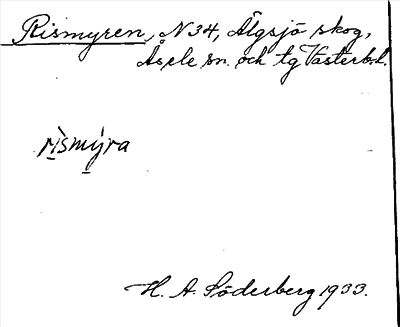 Rismyren, N34, Älgsjö skog,
Åsele sn. och tg Västerb.l.
rìsmýra
H. A. Söderberg 1933.